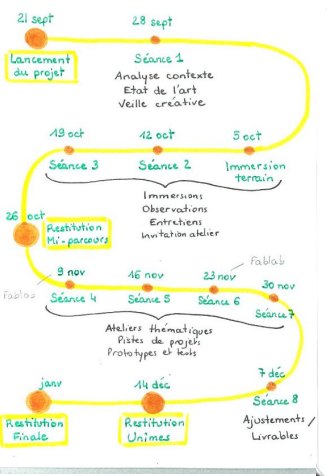 21 sept
Lancement
du projet
28 sept
Séance 1
Analyse contexte
Etat de l'art
Veille créative
5 oct
Immersion
terrain
12 oct
Séance 2
19 oct
Séance 3
Immersions
Observations
Entretiens
Invitation atelier
26 oct
Restitution
Mi-parcours
9 nov
Fablab
Séance 4
16 nov
Séance 5
23 nov
Fablab
Séance 6
30 nov
Séance 7
Ateliers thématiques
Pistes de projets
Prototypes et tests
7 déc
Séance 8
Ajustements /
Livrables
14 déc
Restitution
Unimes
janv
Restitution
Finale